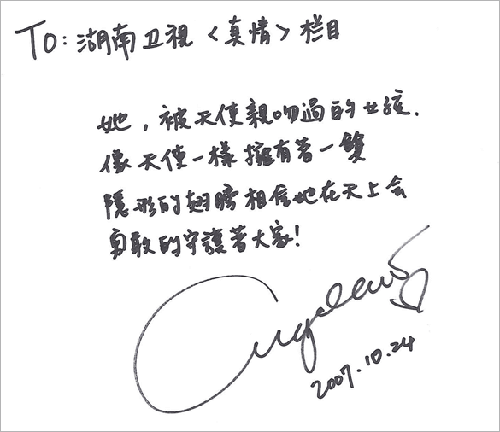 TO: 湖南卫視〈真情〉栏目
她，被天使親吻過的女孩.
像天使一樣擁有著一雙
隱形的翅膀相信她在天上会
勇敢的守護著大家!
Angela
2007.10.24